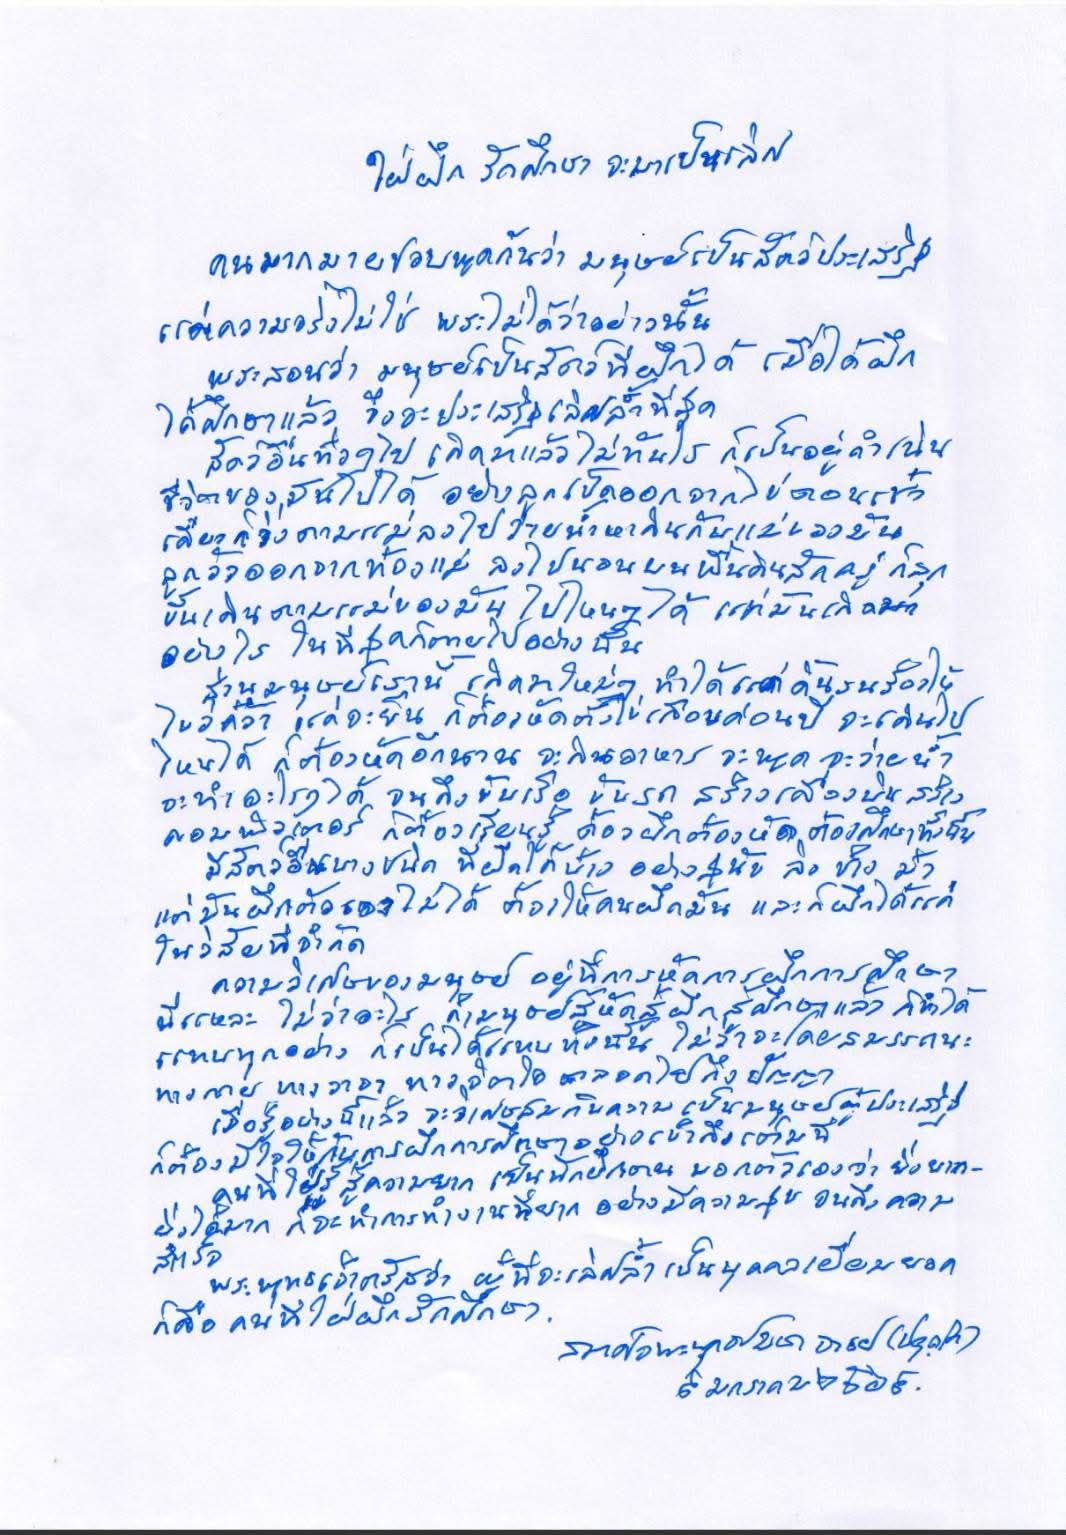 ใฝ่ฝึก รักศึกษา จะมาเป็นเลิศ
คนมากมายชอบพูดกันว่า มนุษย์เป็นสัตว์ประเสริฐ
แต่ความจริงไม่ใช่ พระไม่ได้ว่าอย่างนั้น
พระสอนว่า มนุษย์เป็นสัตว์ที่ฝึกได้ เมื่อได้ฝึก
ได้ศึกษาแล้ว จึงจะประเสริฐเลิศล้ำที่สุด
สัตว์อื่นทั่วๆไป เกิดมาแล้วไม่ทันไร ก็เป็นอยู่ดำเนิน
ชีวิตของมันไปได้ อย่างลูกเป็ดออกจากไข่ตอนเช้า
เดี๋ยวก็วิ่งตามแม่ลงไปว่ายน้ำหากินกับแม่ของมัน
ลูกวัวออกจากท้องแม่ ลงไปนอนบนพื้นดินสักครู่ ก็ลุก
ขึ้นเดินตามแม่ของมัน ไปไหนๆได้ แต่มันเกิดมา
อย่างไร ในที่สุดก็ตายไปอย่างนั้น
ส่วนมนุษย์เรานี้ เกิดมาใหม่ๆ ทำได้แค่ดิ้นรนร้องไห้
ไขว่คว้า แค่จะยืน ก็ต้องหัดตั้งไข่เกือบค่อนปี จะเดินไป
ไหนได้ ก็ต้องหัดอีกนาน จะกินอาหาร จะพูด จะว่ายน้ำ
จะทำอะไรๆได้ จนถึงขับเรือ ขับรถ สร้างเครื่องบิน สร้าง
คอมพิวเตอร์ ก็ต้องเรียนรู้ ต้องฝึกต้องหัด ต้องศึกษาทั้งนั้น
มีสัตว์อื่นบางชนิด ที่ฝึกได้บ้าง อย่างสุนัข ลิง ช้าง ม้า
แต่มันฝึกตัวเองไม่ได้ ต้องให้คนฝึกมัน และก็ฝึกได้แค่
ในวิสัยที่จำกัด
ความวิเศษของมนุษย์ อยู่ที่การหัดการฝึกการศึกษา
นี่แหละ ไม่ว่าอะไร ถ้ามนุษย์สู้หัดสู้ฝึกสู้ศึกษาแล้ว ก็ทำได้
แทบทุกอย่าง ก็เป็นได้แทบทั้งนั้น ไม่ว่าจะโดยสมรรถนะ
ทางกาย ทางวาจา ทางจิตใจ ตลอดไปถึงปัญญา
เมื่อรู้อย่างนี้แล้ว จะวิเศษสมกับความเป็นมนุษย์ผู้ประเสริฐ
ก็ต้องมีใจให้กับการฝึกการศึกษาอย่างเข้าถึงเต็มที่
คนที่ใฝ่รู้สู้ความยาก เป็นนักฝึกตน บอกตัวเองว่า ยิ่งยาก-
ยิ่งได้มาก ก็จะทำการทำงานที่ยาก อย่างมีความสุข จนถึงความ
สำเร็จ
พระพุทธเจ้าตรัสว่า ผู้ที่จะเลิศล้ำ เป็นบุคคลเยี่ยมยอด
ก็คือ คนที่ใฝ่ฝึกรักศึกษา.
สมเด็จพระพุทธโฆษาจารย์ (ประยุทธ์)
๕ มกราคม ๒๕๖๕.